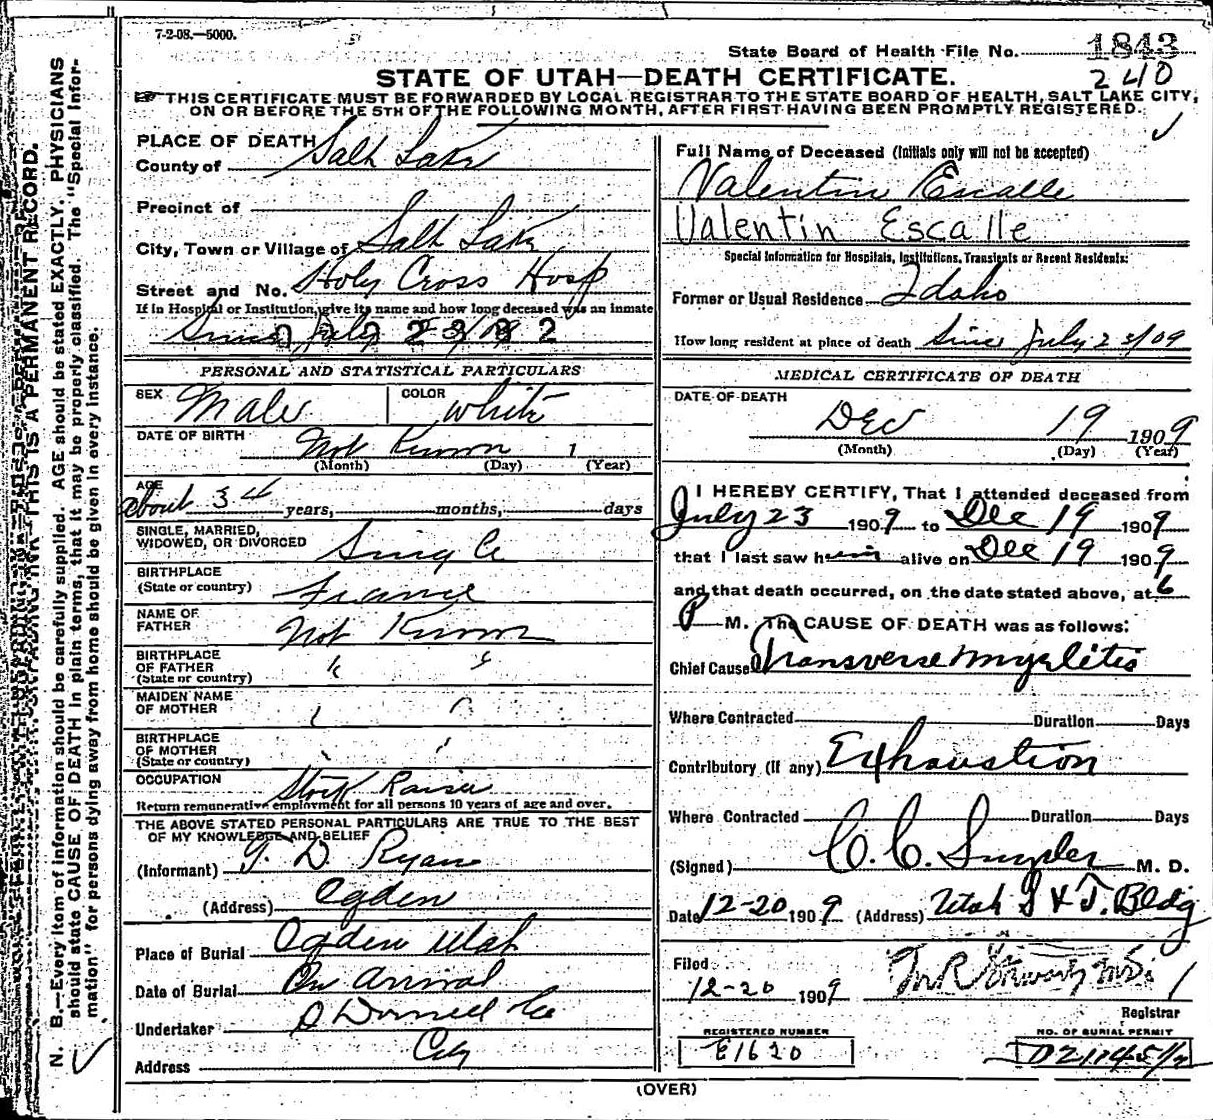 7-2-08.—5000.
State Board of Health File No. 1843
240
STATE OF UTAH—DEATH CERTIFICATE.
THIS CERTIFICATE MUST BE FORWARDED BY LOCAL REGISTRAR TO THE STATE BOARD OF HEALTH, SALT LAKE CITY,
ON OR BEFORE THE 5TH OF THE FOLLOWING MONTH, AFTER FIRST HAVING BEEN PROMPTLY REGISTERED.
N. B.—Every item of information should be carefully supplied. AGE should be stated EXACTLY. PHYSICIANS
should state CAUSE OF DEATH in plain terms, that it may be properly classified. The "Special Infor-
mation" for persons dying away from home should be given in every instance.
THIS IS A PERMANENT RECORD.
PLACE OF DEATH
County of Salt Lake
Precinct of
City, Town or Village of Salt Lake
Street and No. Holy Cross Hosp
If in Hospital or Institution, give its name and how long deceased was an inmate
Since July 23/09
PERSONAL AND STATISTICAL PARTICULARS
SEX Male COLOR White
DATE OF BIRTH Not Known 1
(Month) (Day) (Year)
AGE
about 34 years, months, days
SINGLE, MARRIED,
WIDOWED, OR DIVORCED Single
BIRTHPLACE
(State or country) France
NAME OF
FATHER Not Known
BIRTHPLACE
OF FATHER " "
(State or country)
MAIDEN NAME
OF MOTHER " "
BIRTHPLACE
OF MOTHER " "
(State or country)
OCCUPATION Stock Raiser
Return remunerative employment for all persons 10 years of age and over.
THE ABOVE STATED PERSONAL PARTICULARS ARE TRUE TO THE BEST
OF MY KNOWLEDGE AND BELIEF
(Informant) T. D. Ryan
(Address) Ogden
Place of Burial Ogden Utah
Date of Burial On Arrival
Undertaker O Donnell Co
Address City
Full Name of Deceased (Initials only will not be accepted)
Valentin Escalle
Valentin Escalle
Special Information for Hospitals, Institutions, Transients or Recent Residents:
Former or Usual Residence Idaho
How long resident at place of death Since July 23/09
MEDICAL CERTIFICATE OF DEATH
DATE OF DEATH
Dec 19 1909
(Month) (Day) (Year)
I HEREBY CERTIFY, That I attended deceased from
July 23 1909 to Dec 19 1909
that I last saw him alive on Dec 19 1909
and that death occurred, on the date stated above, at 6
P M. The CAUSE OF DEATH was as follows:
Chief Cause Transverse Myelitis
Where Contracted Duration Days
Contributory (If any) Exhaustion
Where Contracted Duration Days
(Signed) C. C. Snyder M. D.
Date 12-20 1909 (Address) Utah S & T. Bldg
Filed
12-20 1909
Registrar
REGISTERED NUMBER
E1620
NO. OF BURIAL PERMIT
(OVER)